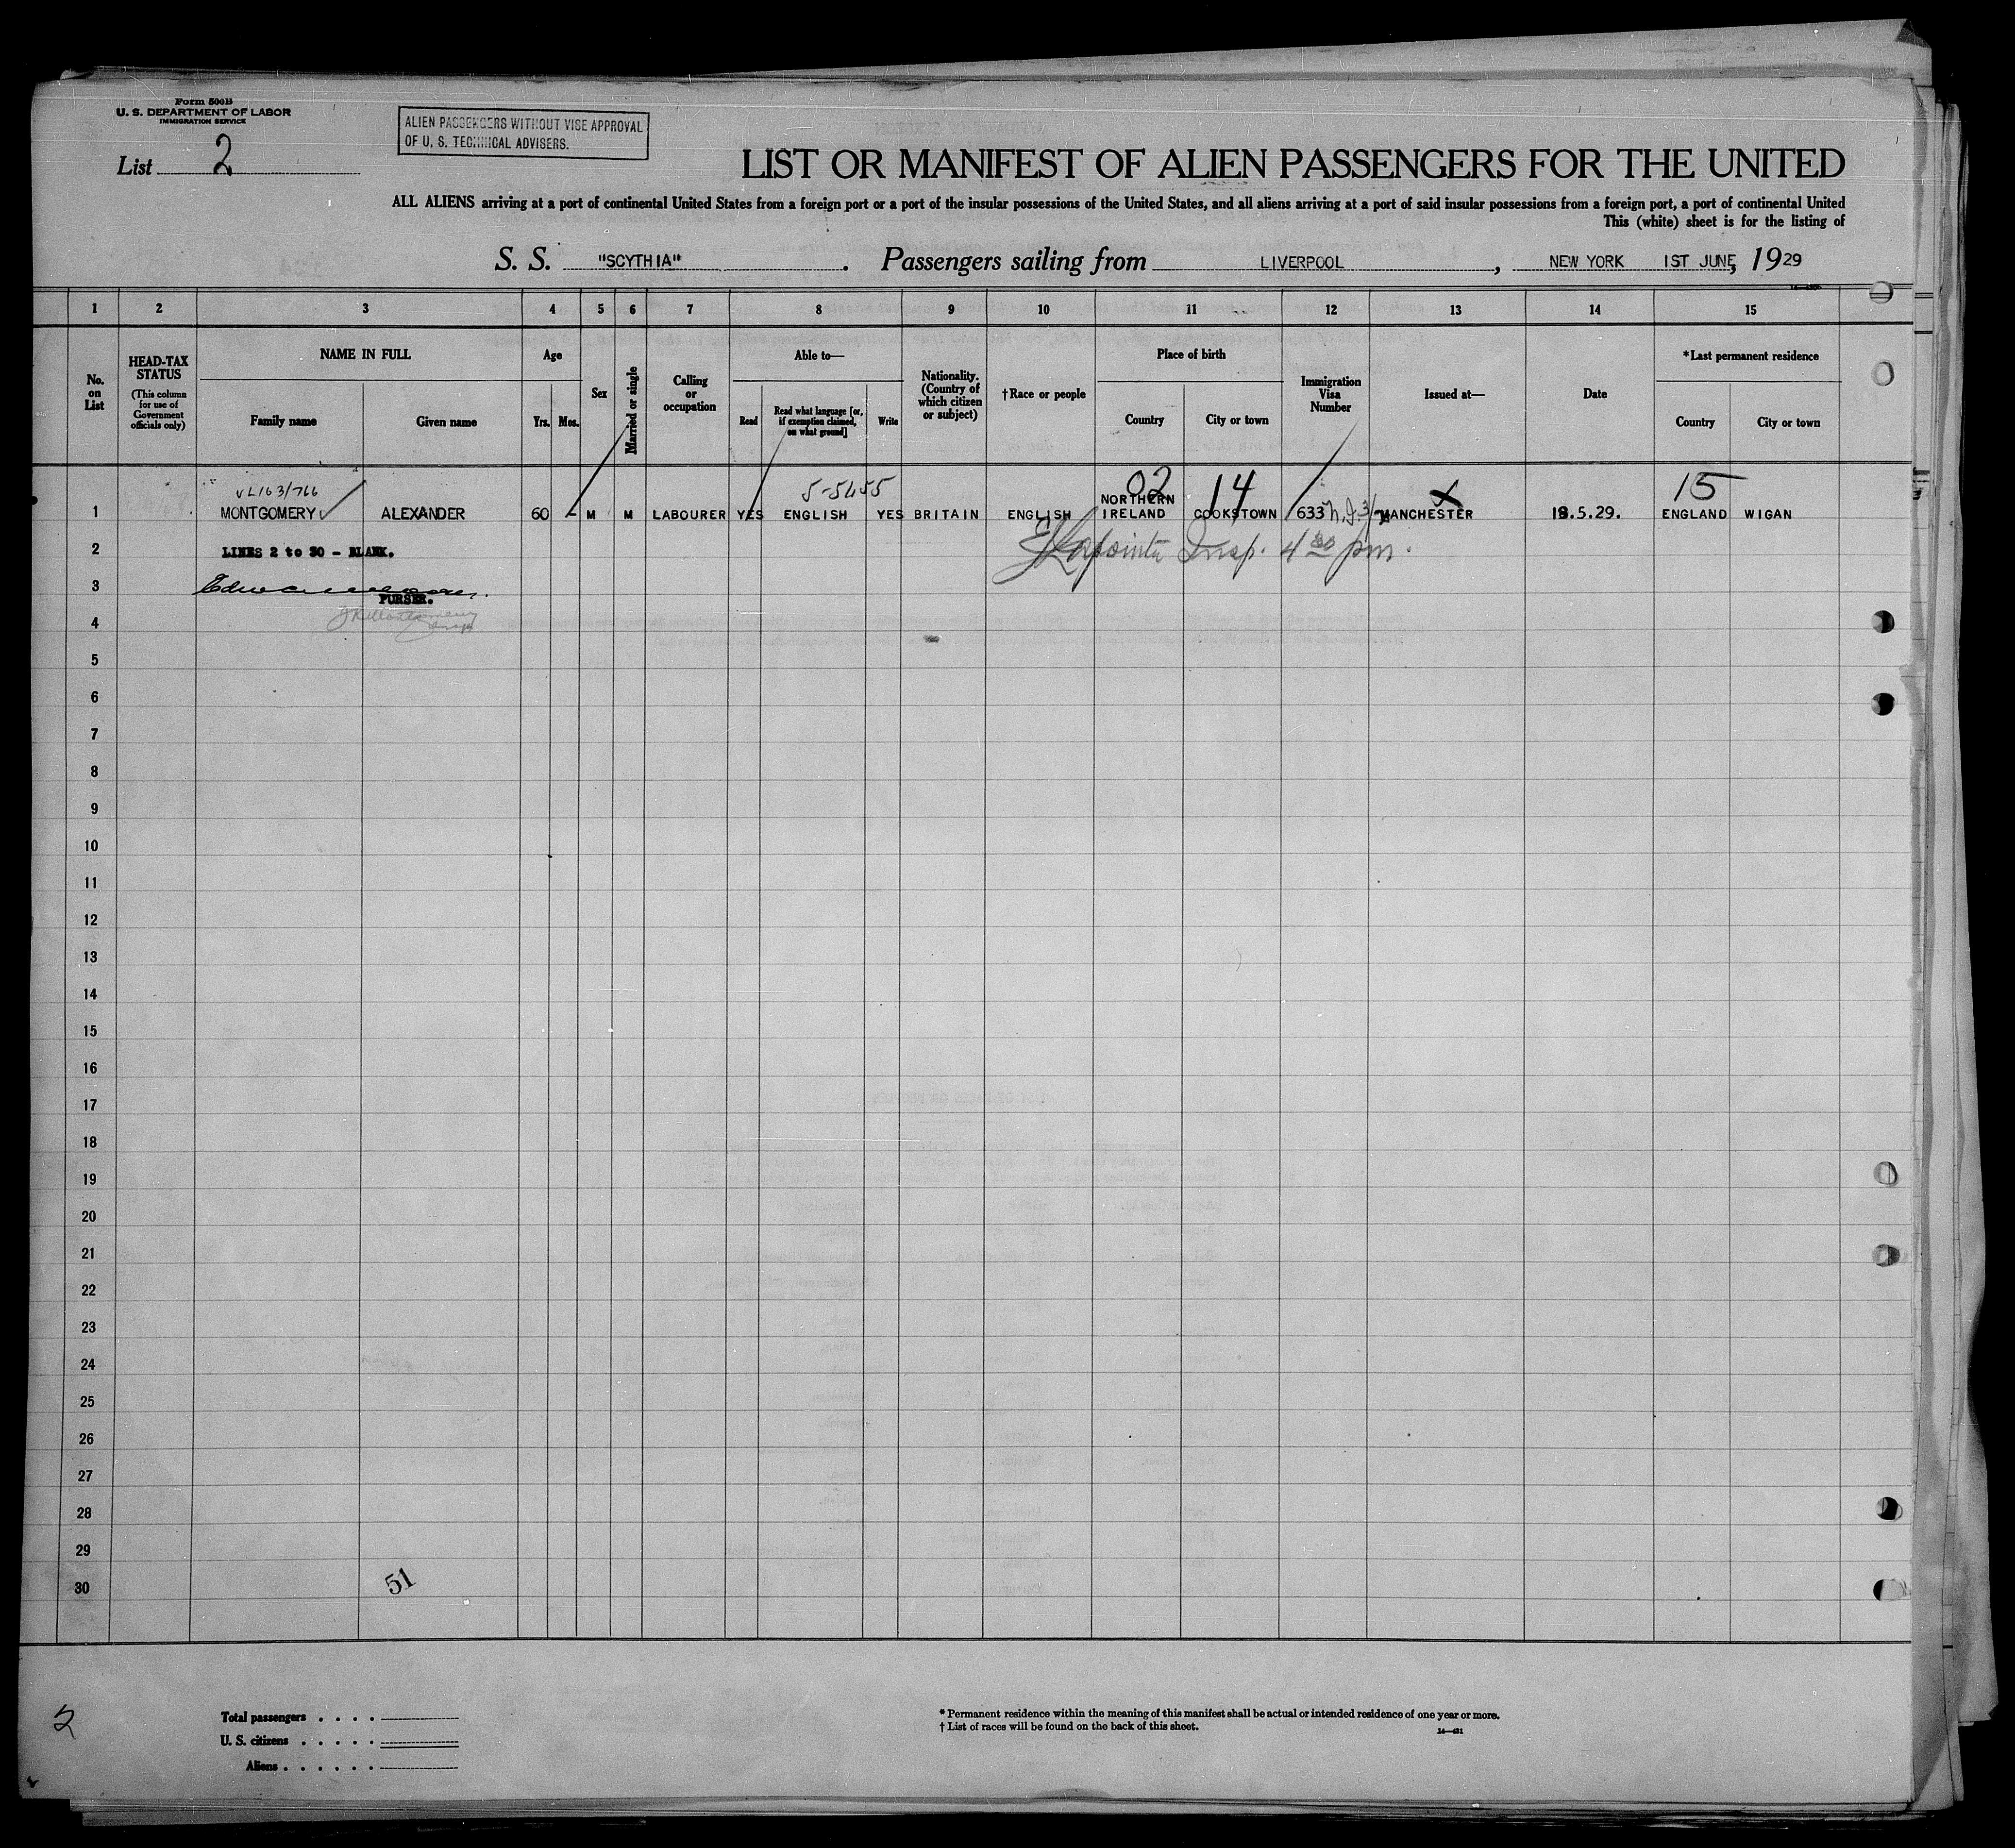 Form 500B
U. S. DEPARTMENT OF LABOR
IMMIGRATION SERVICE
List 2
ALIEN PASSENGERS WITHOUT VISE APPROVAL
OF U. S. TECHNICAL ADVISERS.
LIST OR MANIFEST OF ALIEN PASSENGERS FOR THE UNITED
ALL ALIENS arriving at a port of continental United States from a foreign port or a port of the insular possessions of the United States, and all aliens arriving at a port of said insular possessions from a foreign port, a port of continental United
This (white) sheet is for the listing of
S. S. "SCYTHIA". Passengers sailing from LIVERPOOL, NEW YORK 1ST JUNE, 1929
1 2 3 4 5 6 7 8 9 10 11 12 13 14 15
No. on List
HEAD-TAX STATUS
(This column for use of Government officials only)
NAME IN FULL
Family name Given name
Age
Yrs. Mos.
Sex
Married or single
Calling or occupation
Able to—
Read
Read what language [or, if exemption claimed, on what ground]
Write
Nationality. (Country of which citizen or subject)
†Race or people
Place of birth
Country City or town
Immigration Visa Number
Issued at—
Date
*Last permanent residence
Country City or town
VL163/766 5-5455 02 14 X 15
1 MONTGOMERY ALEXANDER 60 - M M LABOURER YES ENGLISH YES BRITAIN ENGLISH NORTHERN IRELAND COOKSTOWN 633 MANCHESTER 18.5.29. ENGLAND WIGAN
2 LINES 2 to 30 - BLANK. Lapointe Insp. 4 30 pm.
3
PURSER.
4
5
6
7
8
9
10
11
12
13
14
15
16
17
18
19
20
21
22
23
24
25
26
27
28
29
30
51
2
Total passengers . . . .
U. S. citizens . . . . .
Aliens . . . . . .
* Permanent residence within the meaning of this manifest shall be actual or intended residence of one year or more.
† List of races will be found on the back of this sheet.